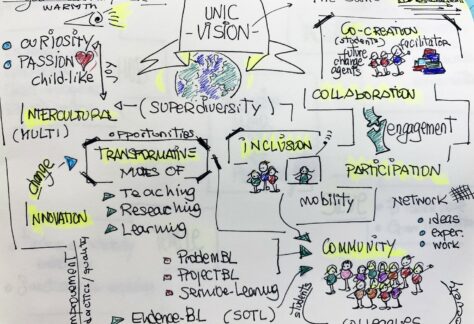 WARMTH
CURIOSITY
PASSION
child-like
JOY
UNIC
-VISION-
CO-CREATION
(students)
facilitator
future
change
agents
COLLABORATION
(SUPERDIVERSITY)
INTERCULTURAL
(MULTI)
engagement
opportunities
TRANSFORMATIVE
MODES OF
Teaching
Researching
Learning
INCLUSION
PARTICIPATION
change
INNOVATION
mobility
NETWORK
ideas
exper
work
COMMUNITY
ProblemBL
ProjectBL
Service-Learning
Evidence-BL (SOTL)
students